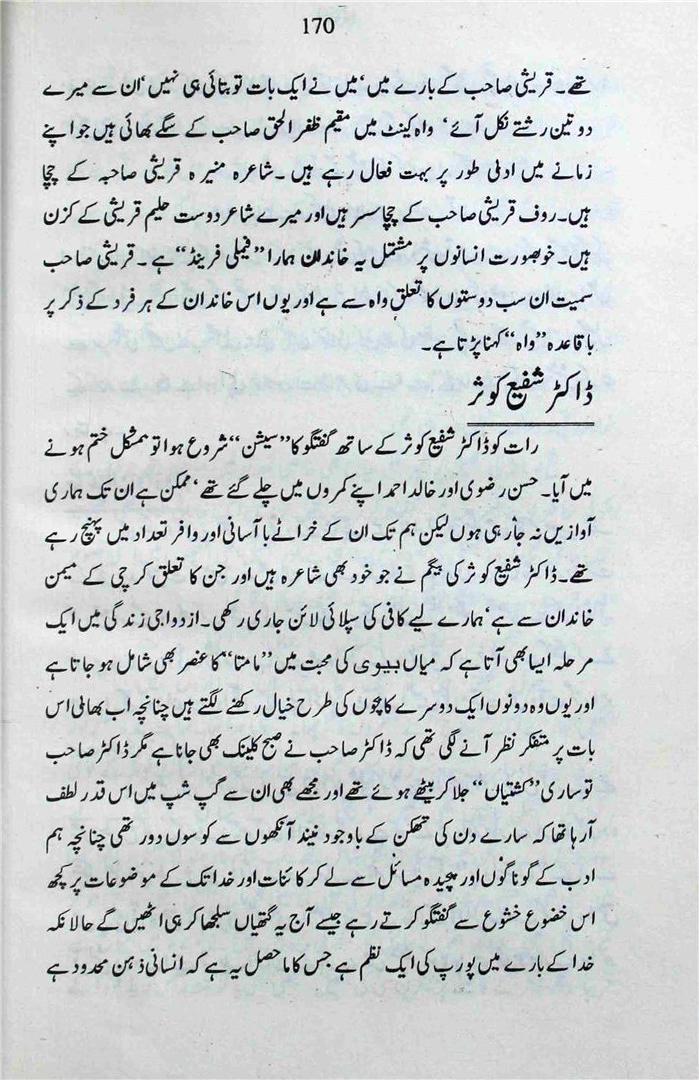 170
تھے۔ قریشی صاحب کے بارے میں‘ میں نے ایک بات تو بتائی ہی نہیں‘ ان سے میرے
دو تین رشتے نکل آئے‘ واہ کینٹ میں مقیم ظفر الحق صاحب کے سگے بھائی ہیں جو اپنے
زمانے میں ادبی طور پر بہت فعال رہے ہیں ۔ شاعرہ منیرہ قریشی صاحبہ کے چچا
ہیں۔ روف قریشی صاحب کے چچا سسر ہیں اور میرے شاعر دوست حلیم قریشی کے کزن
ہیں۔ خوبصورت انسانوں پر مشتمل یہ خاندان ہمارا ’’فیملی فرینڈ‘‘ ہے ۔ قریشی صاحب
سمیت ان سب دوستوں کا تعلق واہ سے ہے اور یوں اس خاندان کے ہر فرد کے ذکر پر
باقاعدہ ’’واہ‘‘ کہنا پڑتا ہے۔
ڈاکٹر شفیع کوثر
رات کو ڈاکٹر شفیع کوثر کے ساتھ گفتگو کا ’’سیشن‘‘ شروع ہوا تو بمشکل ختم ہونے
میں آیا۔ حسن رضوی اور خالد احمد اپنے کمروں میں چلے گئے تھے‘ ممکن ہے ان تک ہماری
آوازیں نہ جا رہی ہوں لیکن ہم تک ان کے خراٹے با آسانی اور وافر تعداد میں پہنچ رہے
تھے۔ ڈاکٹر شفیع کوثر کی بیگم نے جو خود بھی شاعرہ ہیں اور جن کا تعلق کرچی کے میمن
خاندان سے ہے‘ ہمارے لیے کافی کی سپلائی لائن جاری رکھی۔ ازدواجی زندگی میں ایک
مرحلہ ایسا بھی آتا ہے کہ میاں بیوی کی محبت میں ’’مامتا‘‘ کا عنصر بھی شامل ہو جاتا ہے
اور یوں وہ دونوں ایک دوسرے کا بچوں کی طرح خیال رکھنے لگتے ہیں چنانچہ اب بھابی اس
بات پر متفکر نظر آنے لگی تھی کہ ڈاکٹر صاحب نے صبح کلینک بھی جانا ہے مگر ڈاکٹر صاحب
تو ساری ’’کشتیاں‘‘ جلا کر بیٹھے ہوئے تھے اور مجھے بھی ان سے گپ شپ میں اس قدر لطف
آ رہا تھا کہ سارے دن کی تھکن کے باوجود نیند آنکھوں سے کوسوں دور تھی چنانچہ ہم
ادب کے گوناگوں اور پیچیدہ مسائل سے لے کر کائنات اور خدا تک کے موضوعات پر کچھ
اس خضوع خشوع سے گفتگو کرتے رہے جیسے آج یہ گتھیاں سلجھا کر ہی اٹھیں گے حالانکہ
خدا کے بارے میں پورپ کی ایک نظم ہے جس کا ماحصل یہ ہے کہ انسانی ذہن محدود ہے